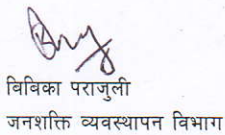 बिबिका पराजुली
जनशक्ति व्यवस्थापन विभाग